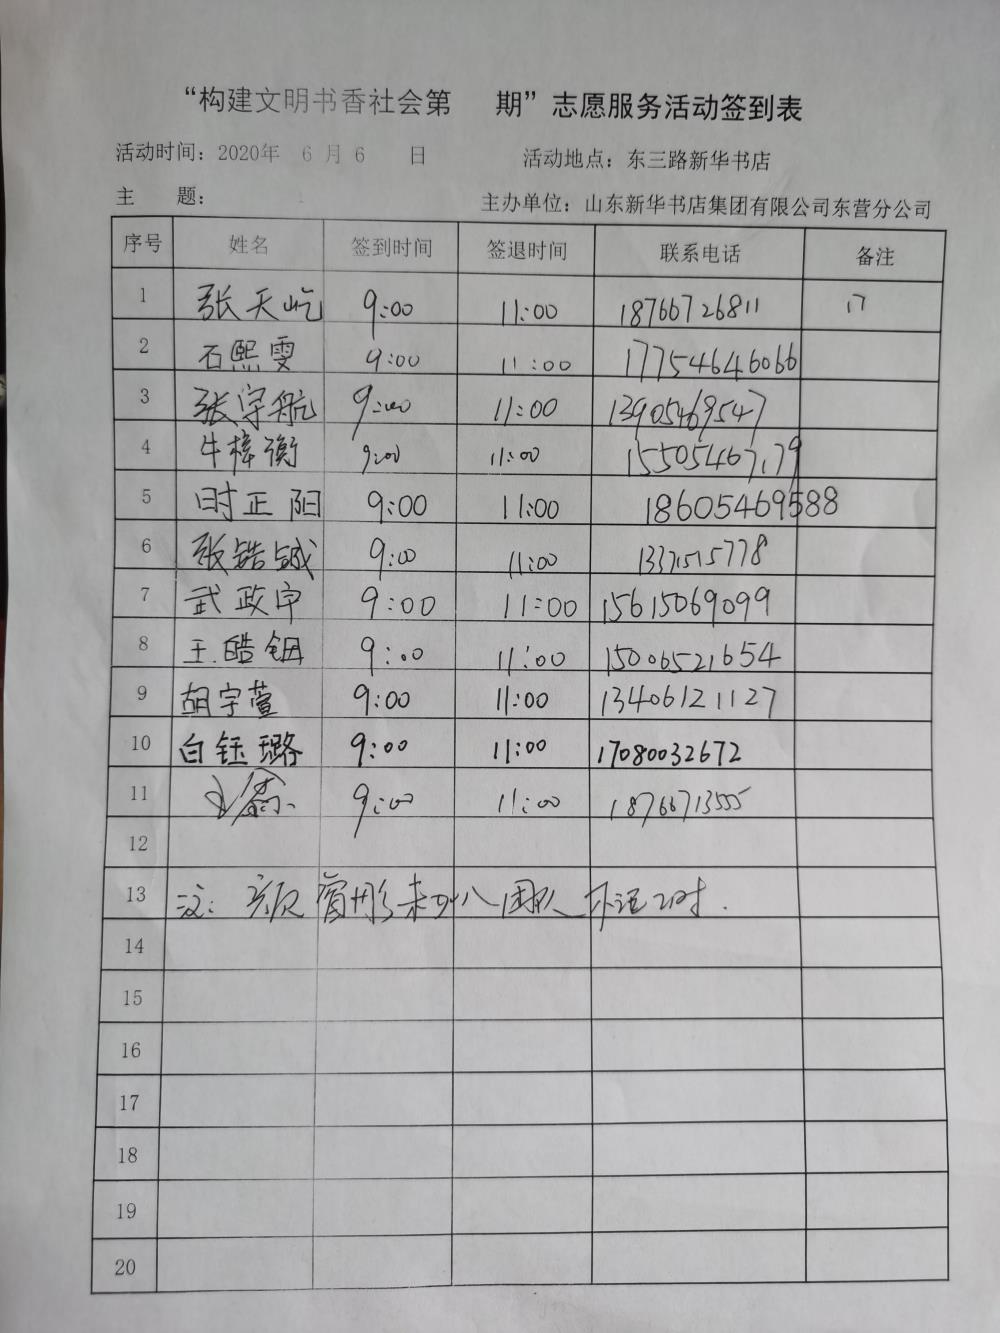 “构建文明书香社会第 期”志愿服务活动签到表
活动时间：2020年 6 月 6 日 活动地点：东三路新华书店
主 题： 主办单位：山东新华书店集团有限公司东营分公司
序号 姓名 签到时间 签退时间 联系电话 备注
1 张天屹 9:00 11:00 18766726811
2 石熙雯 9:00 11:00 17754646066
3 张宇航 9:00 11:00 13905469547
4 牛梓衡 9:00 11:00 15505467179
5 时正阳 9:00 11:00 18605469588
6 张锆铖 9:00 11:00 13371515778
7 武政宇 9:00 11:00 15615069099
8 王皓钿 9:00 11:00 15006521654
9 胡宇萱 9:00 11:00 13406121127
10 白钰璐 9:00 11:00 17080032672
11 9:00 11:00 18766713555
12
13 注: 未加入团队 不记工时.
14
15
16
17
18
19
20